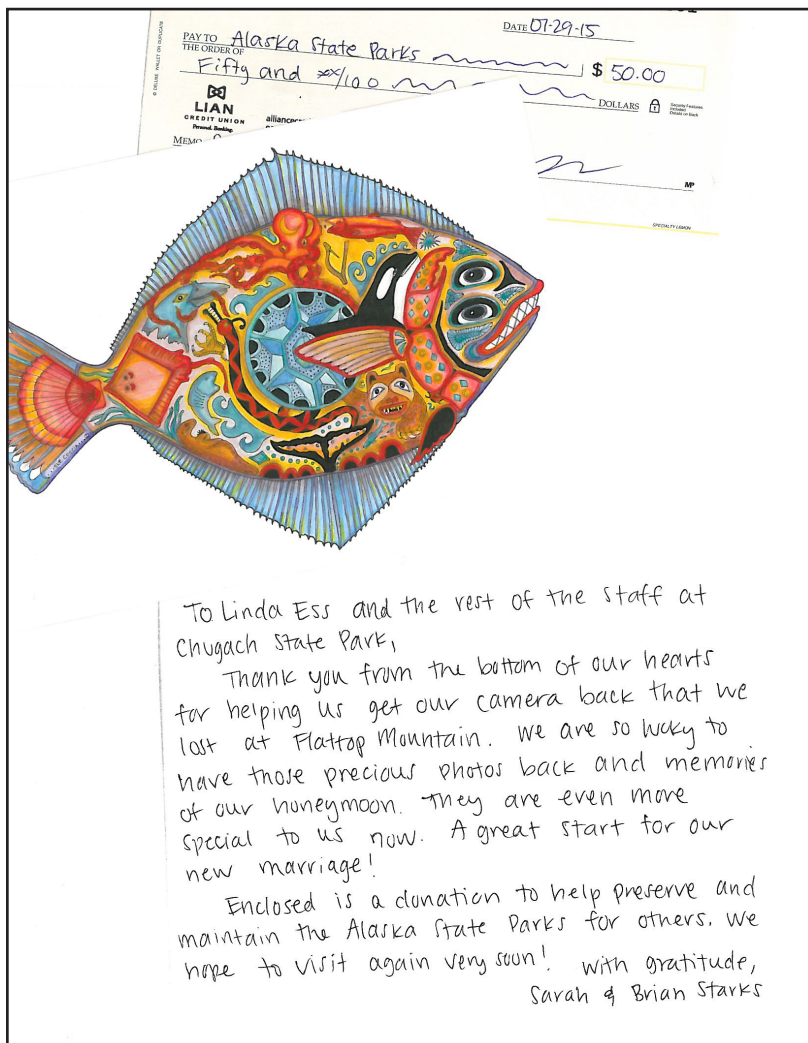 DATE 07-29-15
PAY TO THE ORDER OF Alaska State Parks
$ 50.00
Fifty and xx/100
DOLLARS
Security Features Included Details on Back
© DELUXE WALLET OR DUPLICATE
LIAN
CREDIT UNION
Personal. Banking.
MEMO
MP
SPECIALTY LEMON
To Linda Ess and the rest of the staff at
Chugach State Park,
Thank you from the bottom of our hearts
for helping us get our camera back that we
lost at Flattop Mountain. We are so lucky to
have those precious photos back and memories
of our honeymoon. They are even more
special to us now. A great start for our
new marriage!
Enclosed is a donation to help preserve and
maintain the Alaska State Parks for others. We
hope to visit again very soon! With gratitude,
Sarah & Brian Starks